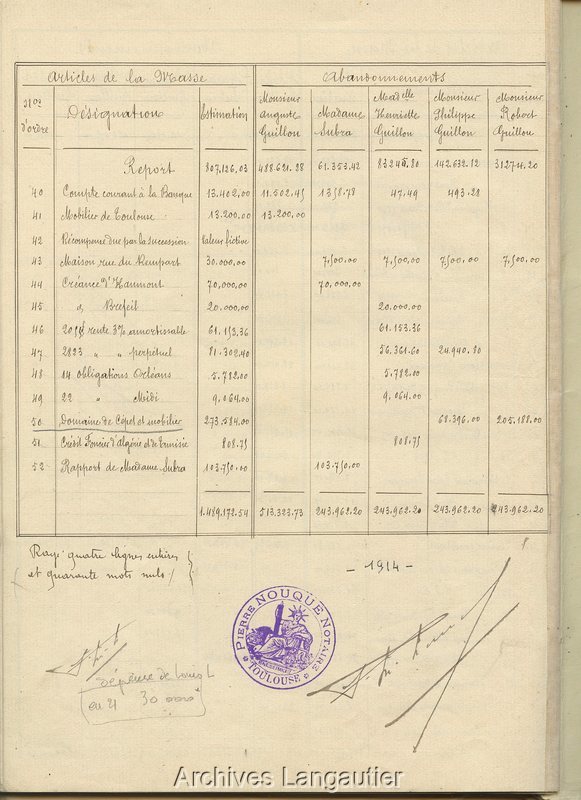 Articles de la Masse Abandonnements
Nos d'ordre Désignation Estimation Monsieur Auguste Guillon Madame Subra Madelle Henriette Guillon Monsieur Philippe Guillon Monsieur Robert Guillon
Report 807.126.03 488.621.28 61.353.42 83245.80 142.632.12 31274.20
40 Compte courant à la Banque 13.402.00 11.502.45 1358.78 47.49 493.28
41 Mobilier de Toulouse 13.200.00 13.200.00
42 Récompense due par la succession Valeur fictive
43 Maison rue du Rempart 30.000.00 7.500.00 7.500.00 7.500.00 7.500.00
44 Créance d'Haumont 70.000.00 70.000.00
45 d Brefeil 20.000.00 20.000.00
46 rente 3% amortissable 61.153.36 61.153.36
47 2823 " " perpétuel 81.302.40 56.361.60 24.940.80
48 14 obligations Orléans 5.782.00 5.782.00
49 22 " Midi 9.064.00 9.064.00
50 Domaine de Cépet et mobilier 273.584.00 68.396.00 205.188.00
51 Crédit Foncier d'Algérie et de Tunisie 808.75 808.75
52 Rapport de Madame Subra 103.750.00 103.750.00
1.489.172.54 513.323.73 243.962.20 243.962.20 243.962.20 243.962.20
Rayé quatre lignes entières
et quarante mots nuls
- 1914 -
PIERRE NOUQUÉ NOTAIRE
TOULOUSE
dépense de Louis L
en 21 30 000
Archives Langautier